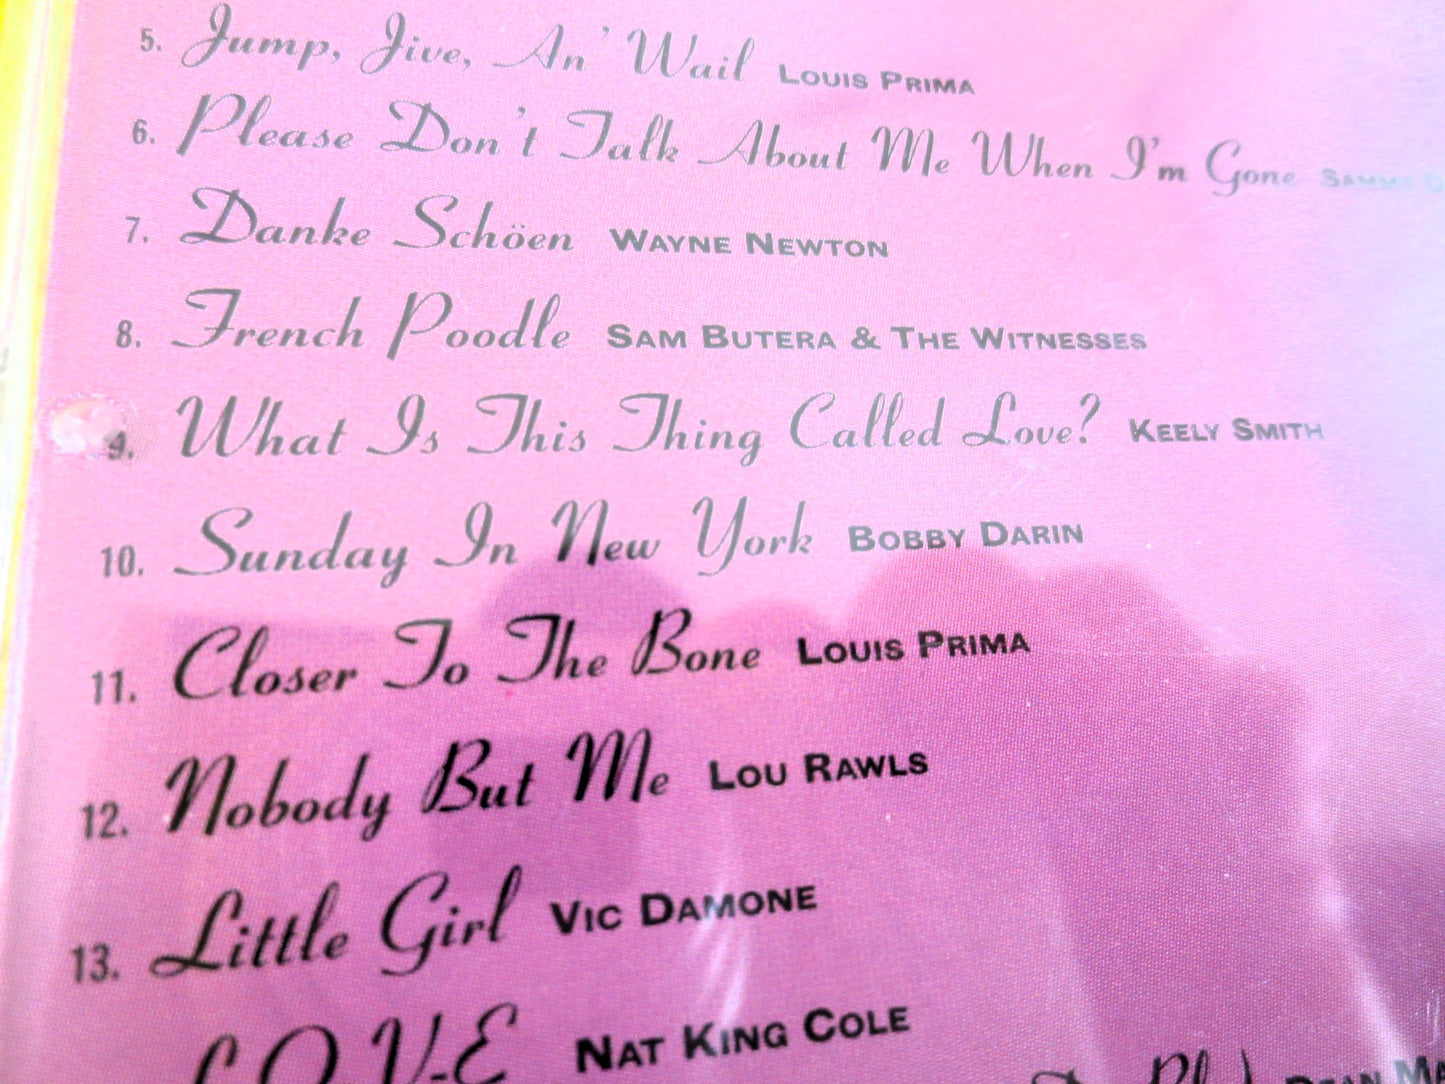 5. Jump, Jive, An' Wail LOUIS PRIMA
6. Please Don't Talk About Me When I'm Gone SAMMY
7. Danke Schöen WAYNE NEWTON
8. French Poodle SAM BUTERA & THE WITNESSES
9. What Is This Thing Called Love? KEELY SMITH
10. Sunday In New York BOBBY DARIN
11. Closer To The Bone LOUIS PRIMA
12. Nobody But Me LOU RAWLS
13. Little Girl VIC DAMONE
L-O-V-E NAT KING COLE
DEAN